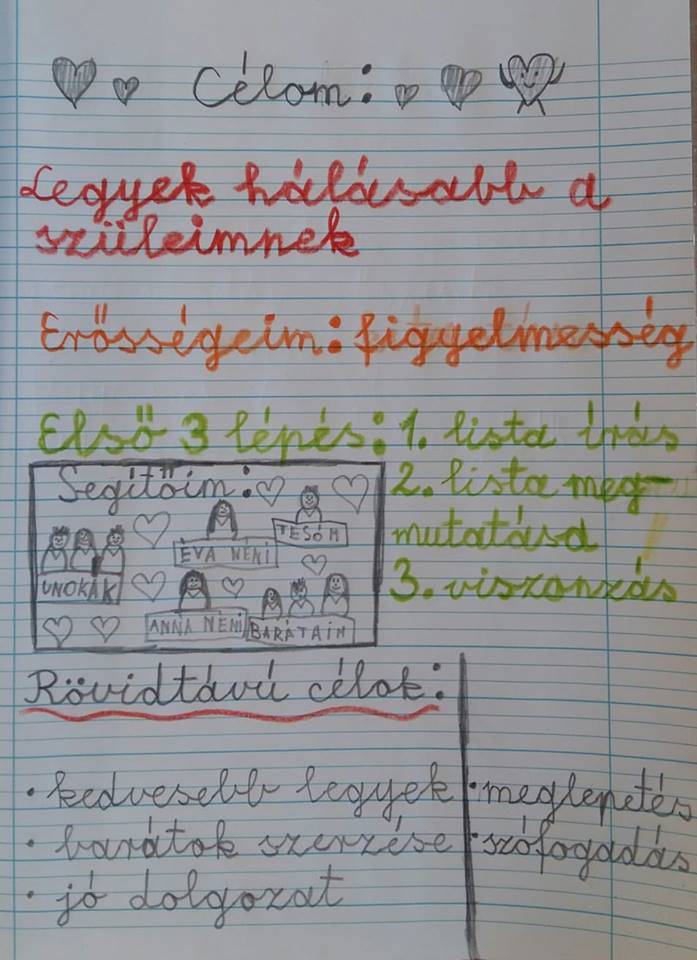 Célom:
Legyek hálásabb a
szüleimnek
Erősségeim: figyelmesség
Első 3 lépés: 1. lista írás
2. lista meg-
mutatása
3. viszonzás
Segítőim:
TESÓM
ÉVA NÉNI
UNOKÁK
ANNA NÉNI
BARÁTAIM
Rövidtávú célok:
• kedvesebb legyek
• barátok szerzése
• jó dolgozat
• meglepetés
• szófogadás